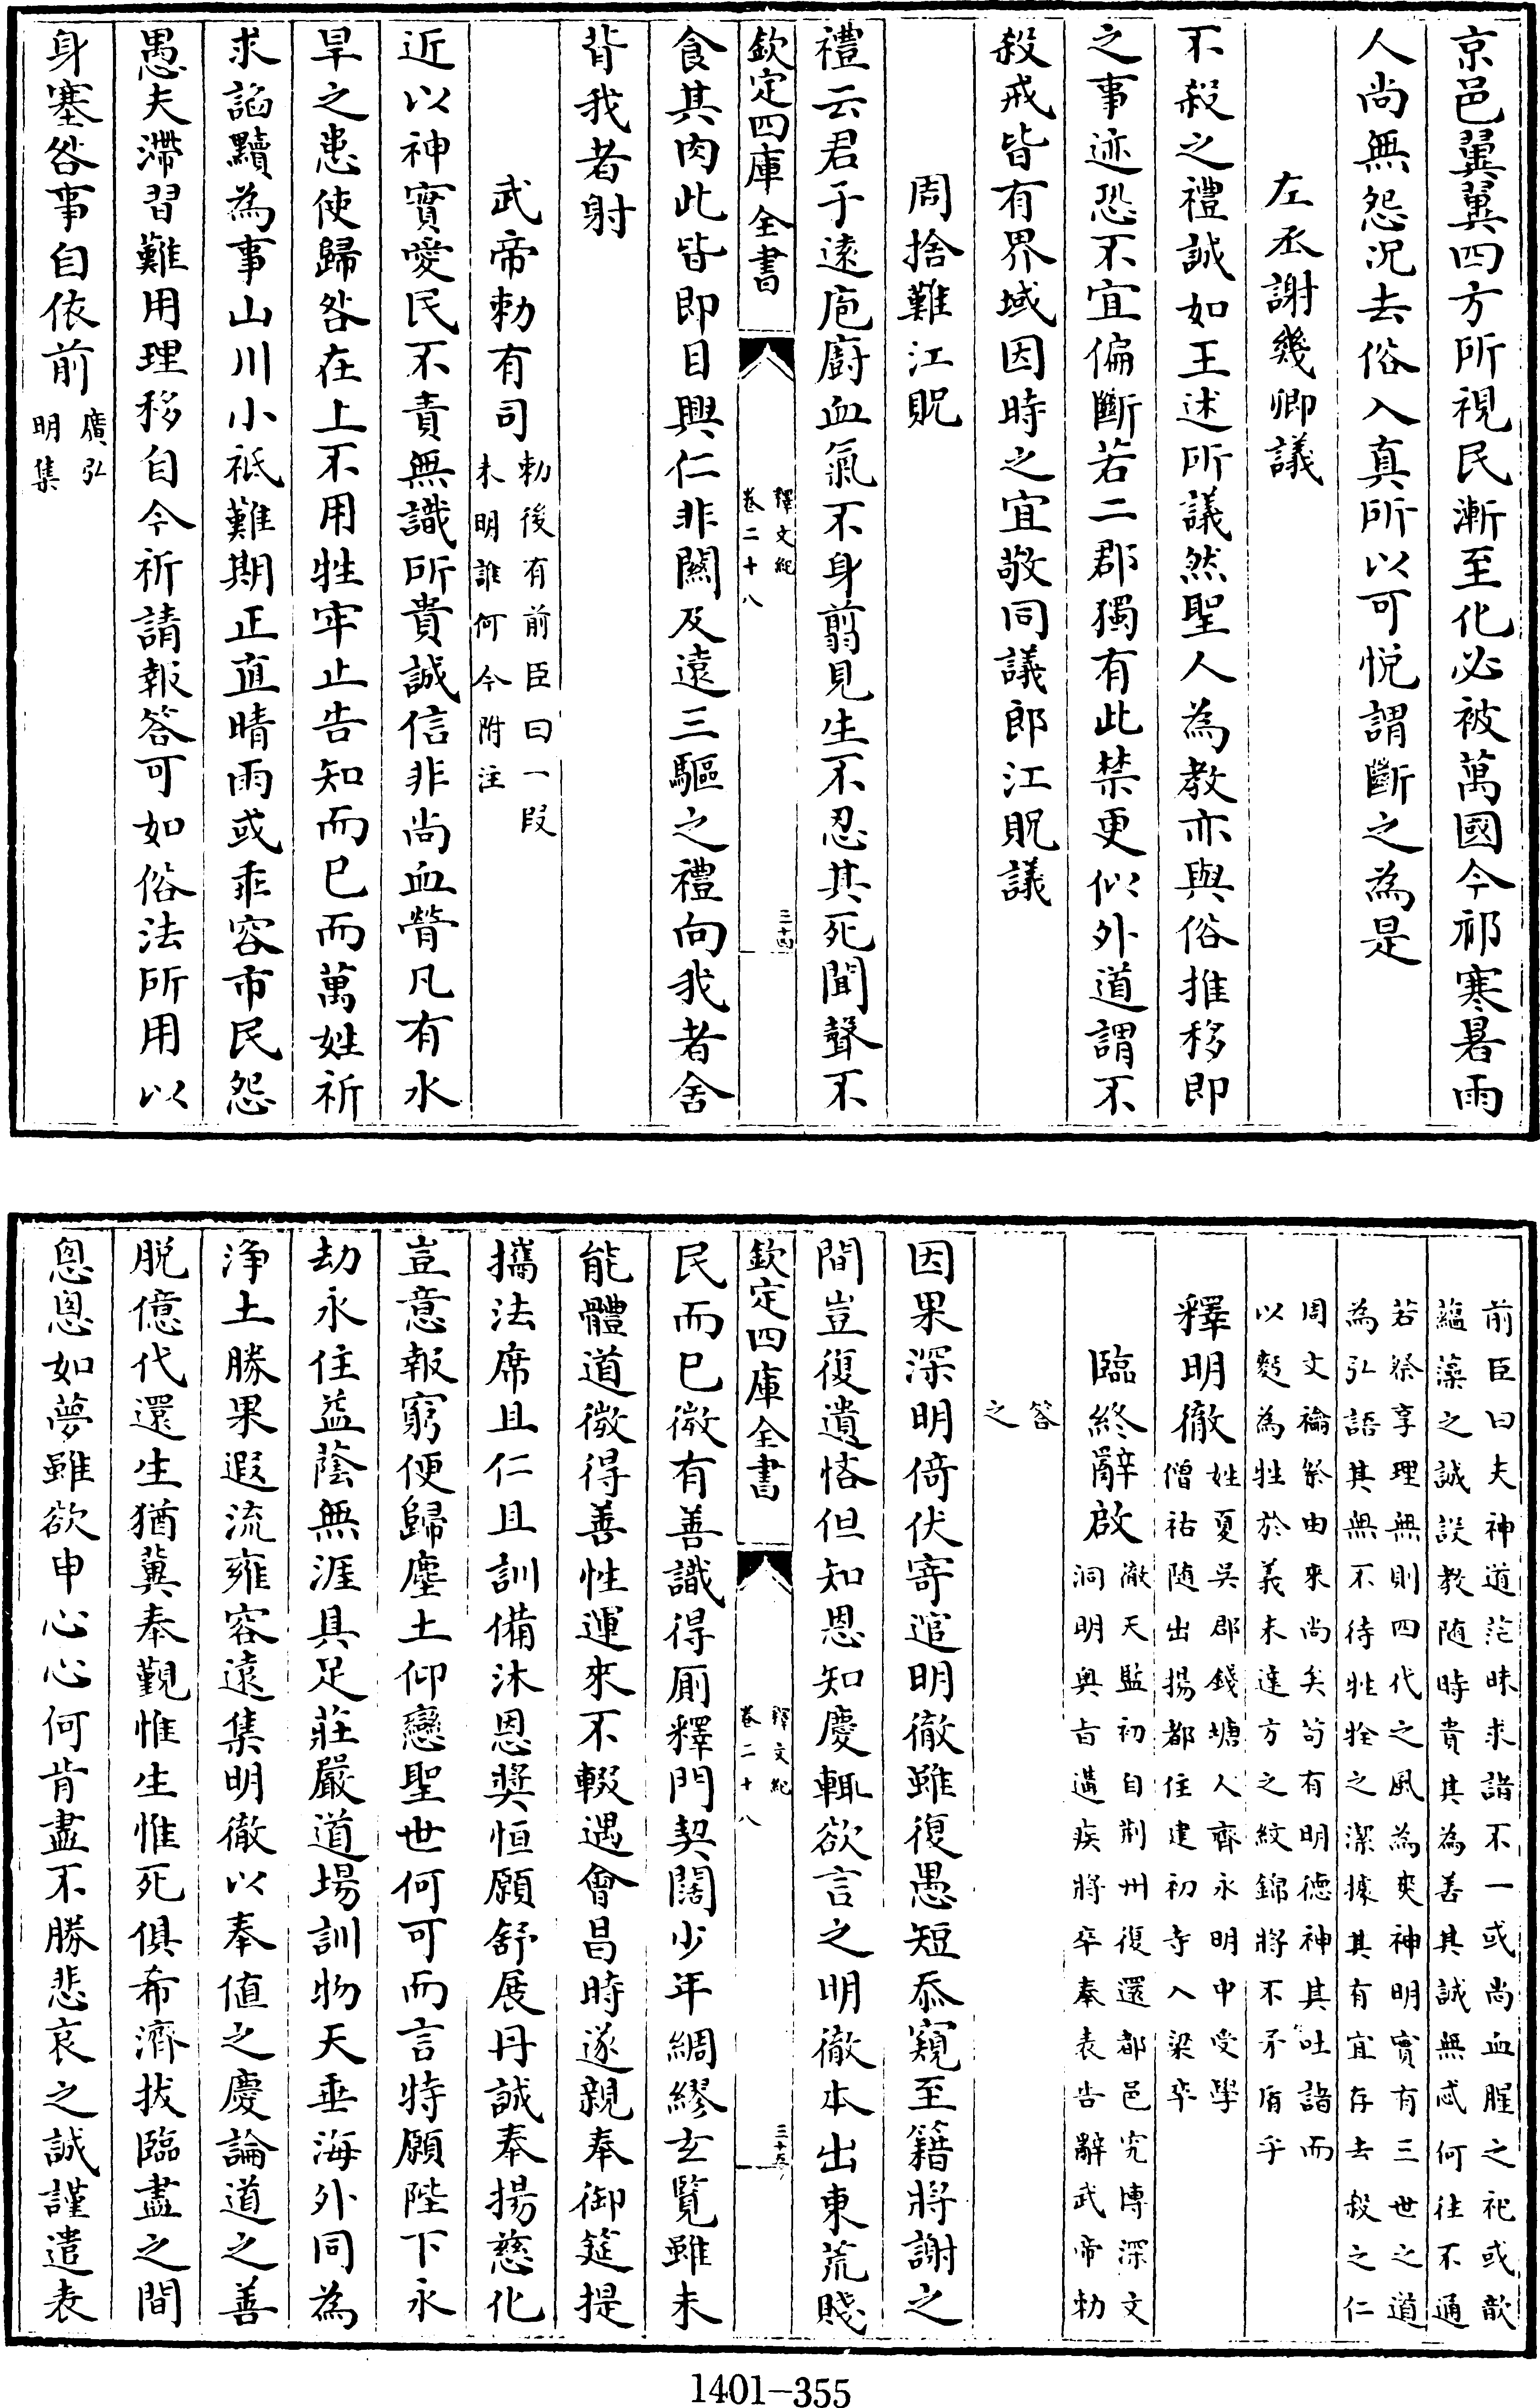 京邑翼翼四方所視民漸至化必被萬國今祁寒暑雨
人尚無怨况去俗入真所以可悦謂斷之為是
左丞謝幾卿議
不殺之禮誠如王述所議然聖人為教亦與俗推移即
之事迹恐不宜偏斷若二郡獨有此禁更似外道謂不
殺戒皆有界域因時之宜敬同議郎江貺議
周捨難江貺
禮云君子逺庖廚血氣不身翦見生不忍其死聞聲不
欽定四庫全書
釋文紀
卷二十八
三十四
食其肉此皆即目興仁非關及遠三驅之禮向我者舍
背我者射
武帝勅有司勅後有前臣曰一段
未明誰何今附注
近以神實愛民不責無識所貴誠信非尚血膋凡有水
旱之患使歸咎在上不用牲牢止告知而已而萬姓祈
求諂黷為事山川小祇難期正直晴雨或乖容市民怨
愚夫滯習難用理移自今祈請報答可如俗法所用以
身塞咎事自依前廣弘
明集
前臣曰夫神道茫昧求諸不一或尚血腥之祀或歆
蘊藻之誠設教随時貴其為善其誠無忒何往不通
若祭享理無則四代之風為爽神明實有三世之道
為弘語其無不待牲牷之潔據其有宜存去殺之仁
周文禴祭由來尚矣苟有明德神其吐諸而
以麪為牲於義未達方之紋錦將不矛盾乎
釋明徹姓夏吳郡錢塘人齊永明中受學
僧祐随出揚都住建初寺入梁卒
臨終辭啟徹天監初自荆州復還都邑究博深文
洞明奥旨遘疾將卒奉表告辭武帝勅
答
之
因果深明倚伏寄逭明徹雖復愚短忝窺至籍將謝之
間豈復遺悋但知恩知慶輒欲言之明徹本出東荒賤
欽定四庫全書
釋文紀
卷二十八
三十五
民而已微有善識得厠釋門契闊少年綢繆玄覽雖未
能體道微得善性運來不輟遇會昌時遂親奉御筵提
攜法席且仁且訓備沐恩奬恒願舒展丹誠奉揚慈化
豈意報窮便歸塵土仰戀聖世何可而言特願陛下永
劫永住益蔭無涯具足莊嚴道場訓物天垂海外同為
淨土勝果遐流雍容遠集明徹以奉值之慶論道之善
脱億代還生猶冀奉覲惟生惟死俱希濟拔臨盡之間
恩恩如夢雖欲申心心何肯盡不勝悲哀之誠謹遣表
1401-355